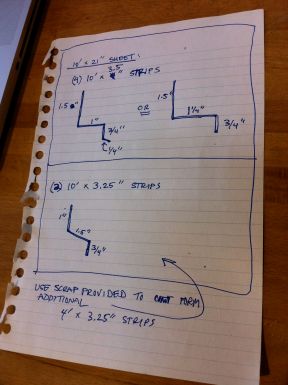 10' x 21" SHEET:
3.5
(4) 10' x " STRIPS
1.5 "
1"
3/4"
1/4"
OR
1.5"
1 1/4"
3/4"
(2) 10' x 3.25" STRIPS
1"
1.5"
3/4"
USE SCRAP PROVIDED TO FORM
ADDITIONAL
4' x 3.25" STRIPS